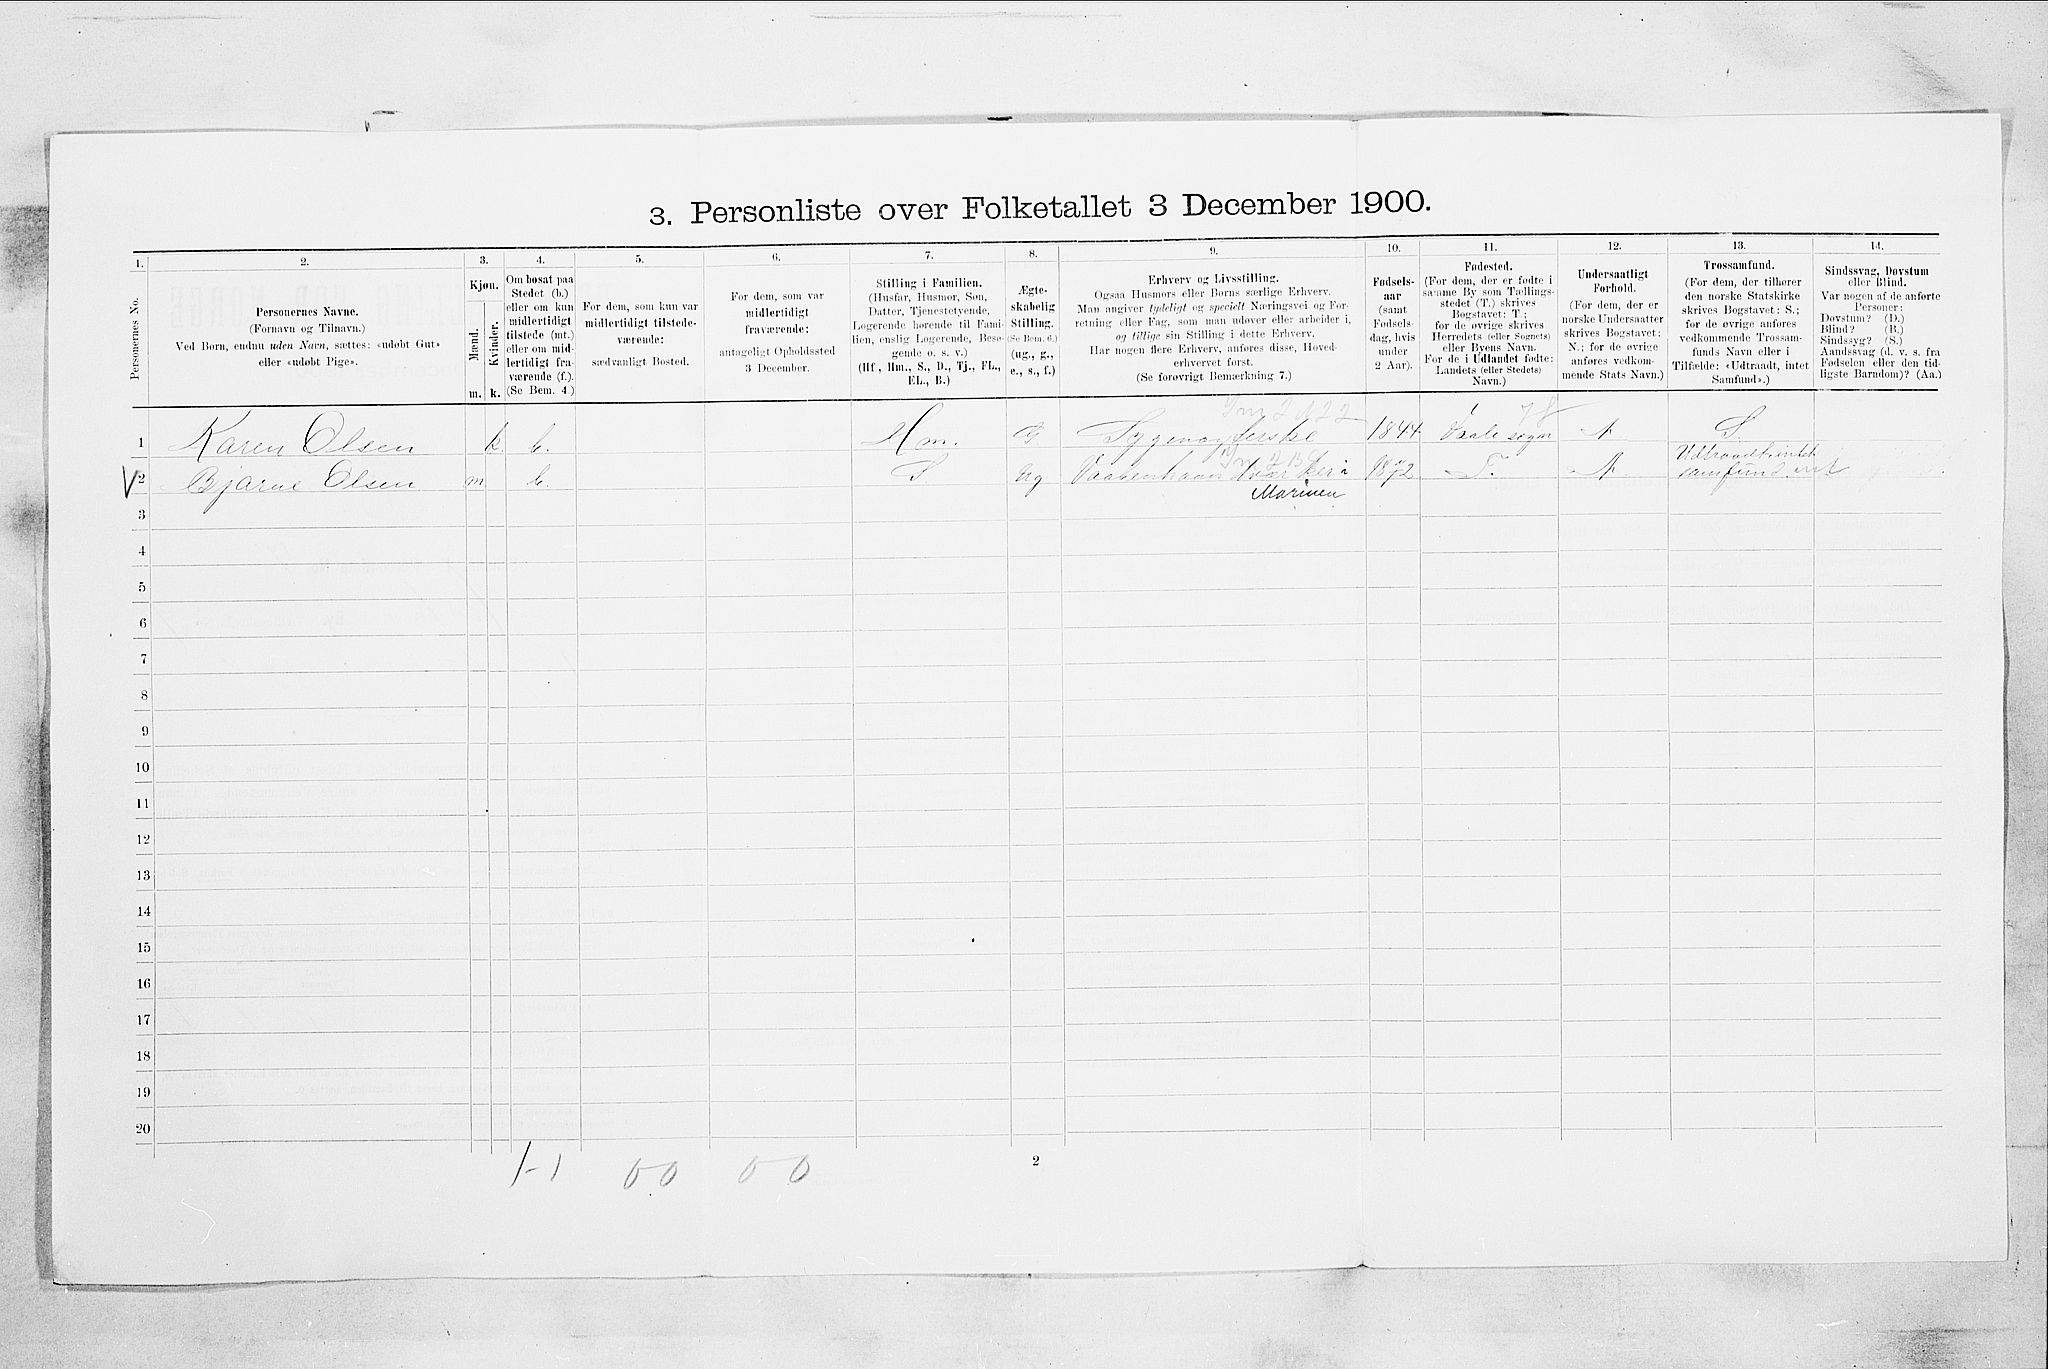 3. Personliste over Folketallet 3 December 1900.
1. 2. 3. 4. 5. 6. 7. 8. 9. 10. 11. 12. 13. 14.
Personernes No.
Personernes Navne.
(Fornavn og Tilnavn.)
Ved Børn, endnu uden Navn, sættes: «udøbt Gut»
eller «udøbt Pige».
Kjøn.
Mænd.
Kvinder.
m. k.
Om bosat paa
Stedet (b.)
eller om kun
midlertidigt
tilstede (mt.)
eller om mid-
lertidigt fra-
værende (f.).
(Se Bem. 4.)
For dem, som kun var
midlertidigt tilstede-
værende:
sædvanligt Bosted.
For dem, som var
midlertidigt
fraværende:
antageligt Opholdssted
3 December.
Stilling i Familien.
(Husfar, Husmor, Søn,
Datter, Tjenestetyende,
Logerende hørende til Fami-
lien, enslig Logerende, Besø-
gende o. s. v.)
(Hf., Hm., S., D., Tj., FL.,
EL., B.)
Ægte-
skabelig
Stilling.
(Se Bem. 6.)
(ug., g.,
e., s., f.)
Erhverv og Livsstilling.
Ogsaa Husmors eller Børns særlige Erhverv.
Man angiver tydeligt og specielt Næringsvei og For-
retning eller Fag, som man udøver eller arbeider i,
og tillige sin Stilling i dette Erhverv.
Har nogen flere Erhverv, anføres disse, Hoved-
erhvervet først.
(Se forøvrigt Bemærkning 7.)
Fødsels-
aar
(samt
Fødsels-
dag, hvis
under
2 Aar).
Fødested.
(For dem, der er fødte i
samme By som Tællings-
stedet (T.) skrives
Bogstavet: T.;
for de øvrige skrives
Herredets (eller Sognets)
eller Byens Navn.
For de i Udlandet fødte:
Landets (eller Stedets)
Navn.)
Undersaatligt
Forhold.
(For dem, der er
norske Undersaatter
skrives Bogstavet:
N.; for de øvrige
anføres vedkom-
mende Stats Navn.)
Trossamfund.
(For dem, der tilhører
den norske Statskirke
skrives Bogstavet: S.;
for de øvrige anføres
vedkommende Trossam-
funds Navn eller i
Tilfælde: «Udtraadt, intet
Samfund».)
Sindssvag, Døvstum
eller Blind.
Var nogen af de anførte
Personer:
Døvstum? (D.)
Blind? (B.)
Sindssyg? (S.)
Aandssvag (d. v. s. fra
Fødselen eller den tid-
ligste Barndom)? (Aa.)
1 Karen Olsen k. b. Hm. G 1844 sogn N S.
2 Bjarne Olsen m b. S ug i 1872 T. N Udtraadt intet
Marinen samfund
3
4
5
6
7
8
9
10
11
12
13
14
15
16
17
18
19
20
1-1 0 0 0-0
2